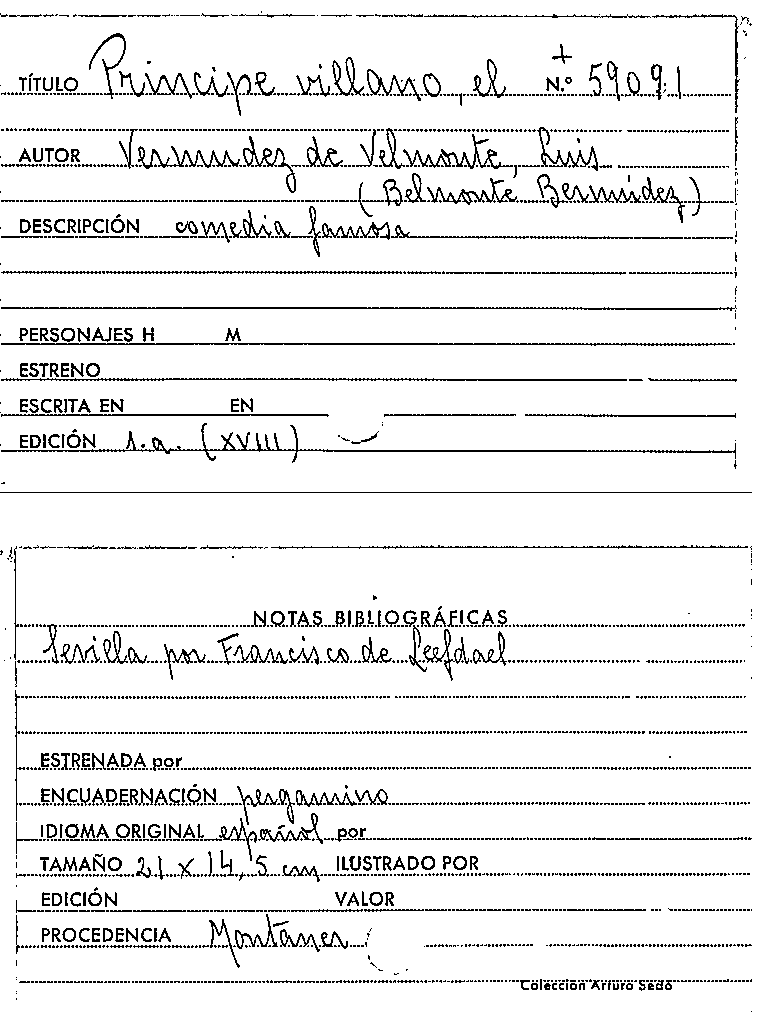 TÍTULO Príncipe villano, el + N.º 59091
AUTOR Vermudez de Velmonte, Luis
(Belmonte Bermúdez)
DESCRIPCIÓN comedia famosa
PERSONAJES H M
ESTRENO
ESCRITA EN EN
EDICIÓN s.a. (XVIII)
NOTAS BIBLIOGRÁFICAS
Sevilla por Francisco de Leefdael
ESTRENADA por
ENCUADERNACIÓN pergamino
IDIOMA ORIGINAL español por
TAMAÑO 21 x 14,5 cm ILUSTRADO POR
EDICIÓN VALOR
PROCEDENCIA Montaner
Colección Arturo Sedó